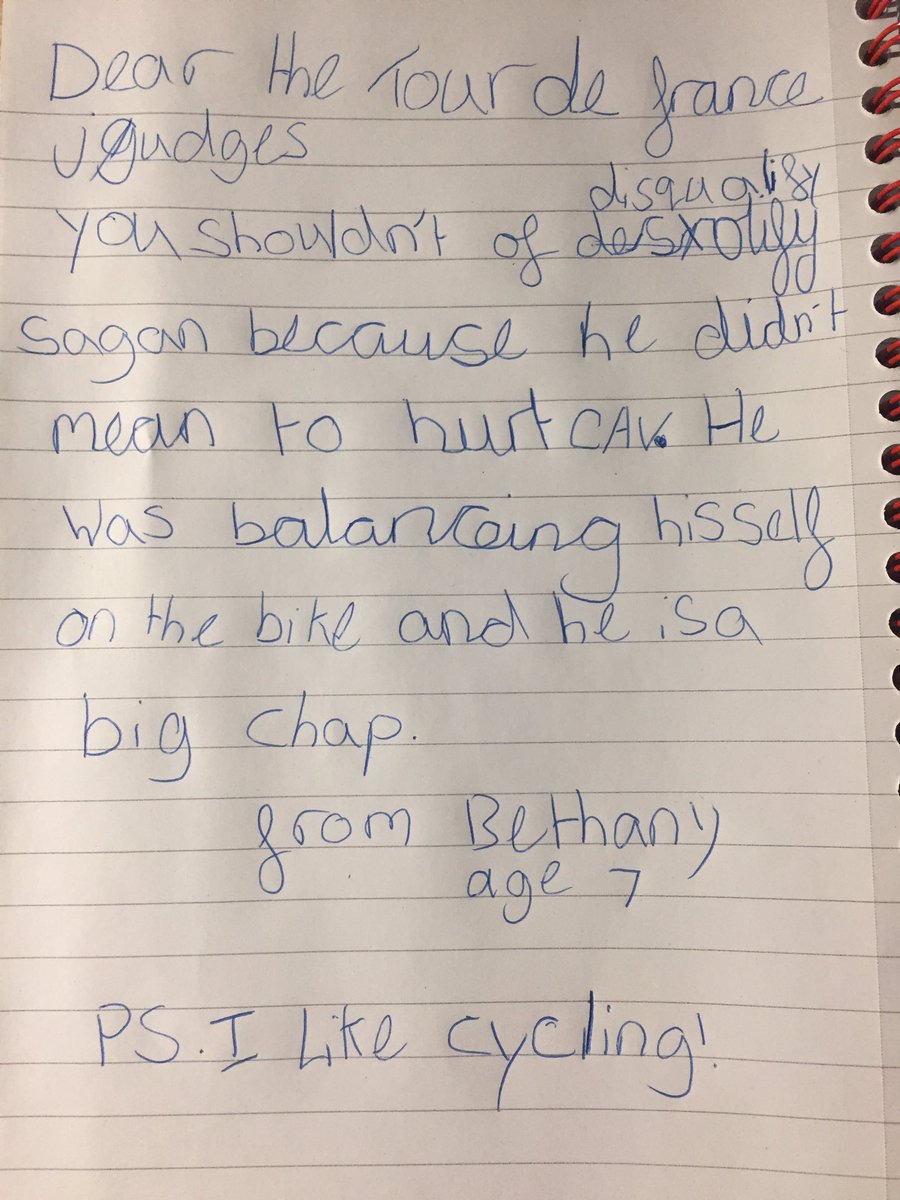 Dear the Tour de france
judges
disqualify
you shouldn't of desxolify
sagan because he didn't
mean to hurt CAV. He
was balanceing hisself
on the bike and he is a
big chap.
from Bethany
age 7
PS. I Like cycling!